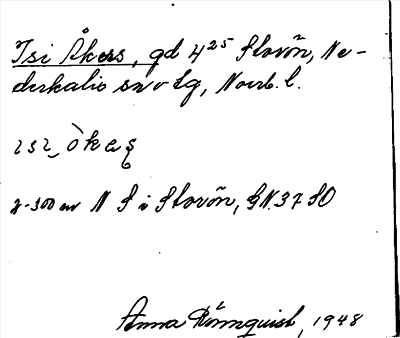 Isi Åkers, gd 4²⁵ Storön, Ne-
derkalix sn o tg, Norrb. l.
ɪsɪ, òkaş
N S i Storön, GK.37 SO
Anna Rönnquist, 1948